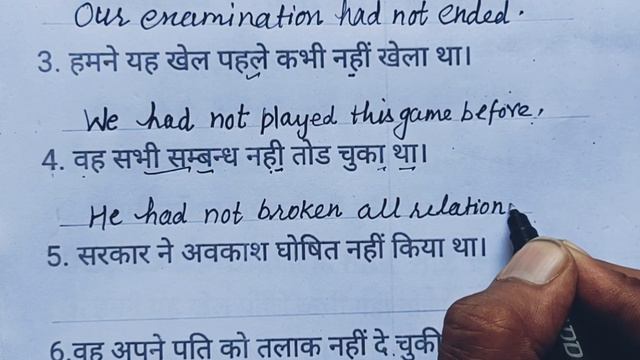 Our enamination had not ended.
3. हमने यह खेल पहले कभी नहीं खेला था।
We had not played this game before,
4. वह सभी सम्बन्ध नही तोड चुका था।
He had not broken all relation
5. सरकार ने अवकाश घोषित नहीं किया था।
6.वह अपने पति को तलाक नहीं दे चुकी